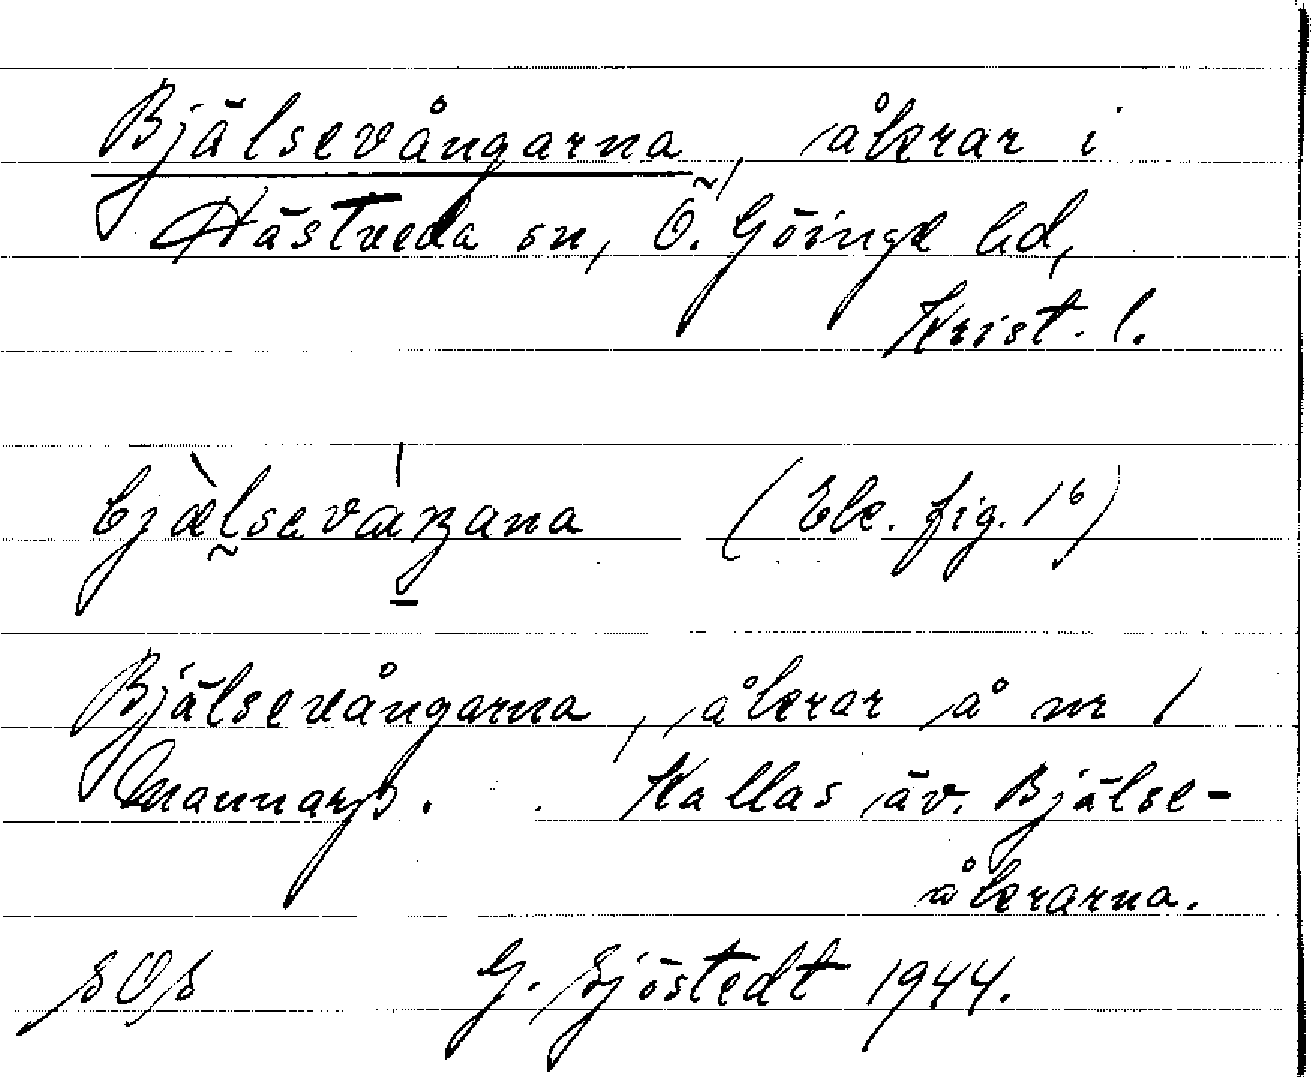 Bjälsevångarna, åkrar i
Hästveda sn, Ö. Göinge hd,
Krist. l.
(Ek. fig. 1⁶)
Bjälsevångarna, åkrar å nr 1
Mannarp. Kallas äv. Bjälse-
åkrarna.
SOS G. Sjöstedt 1944.